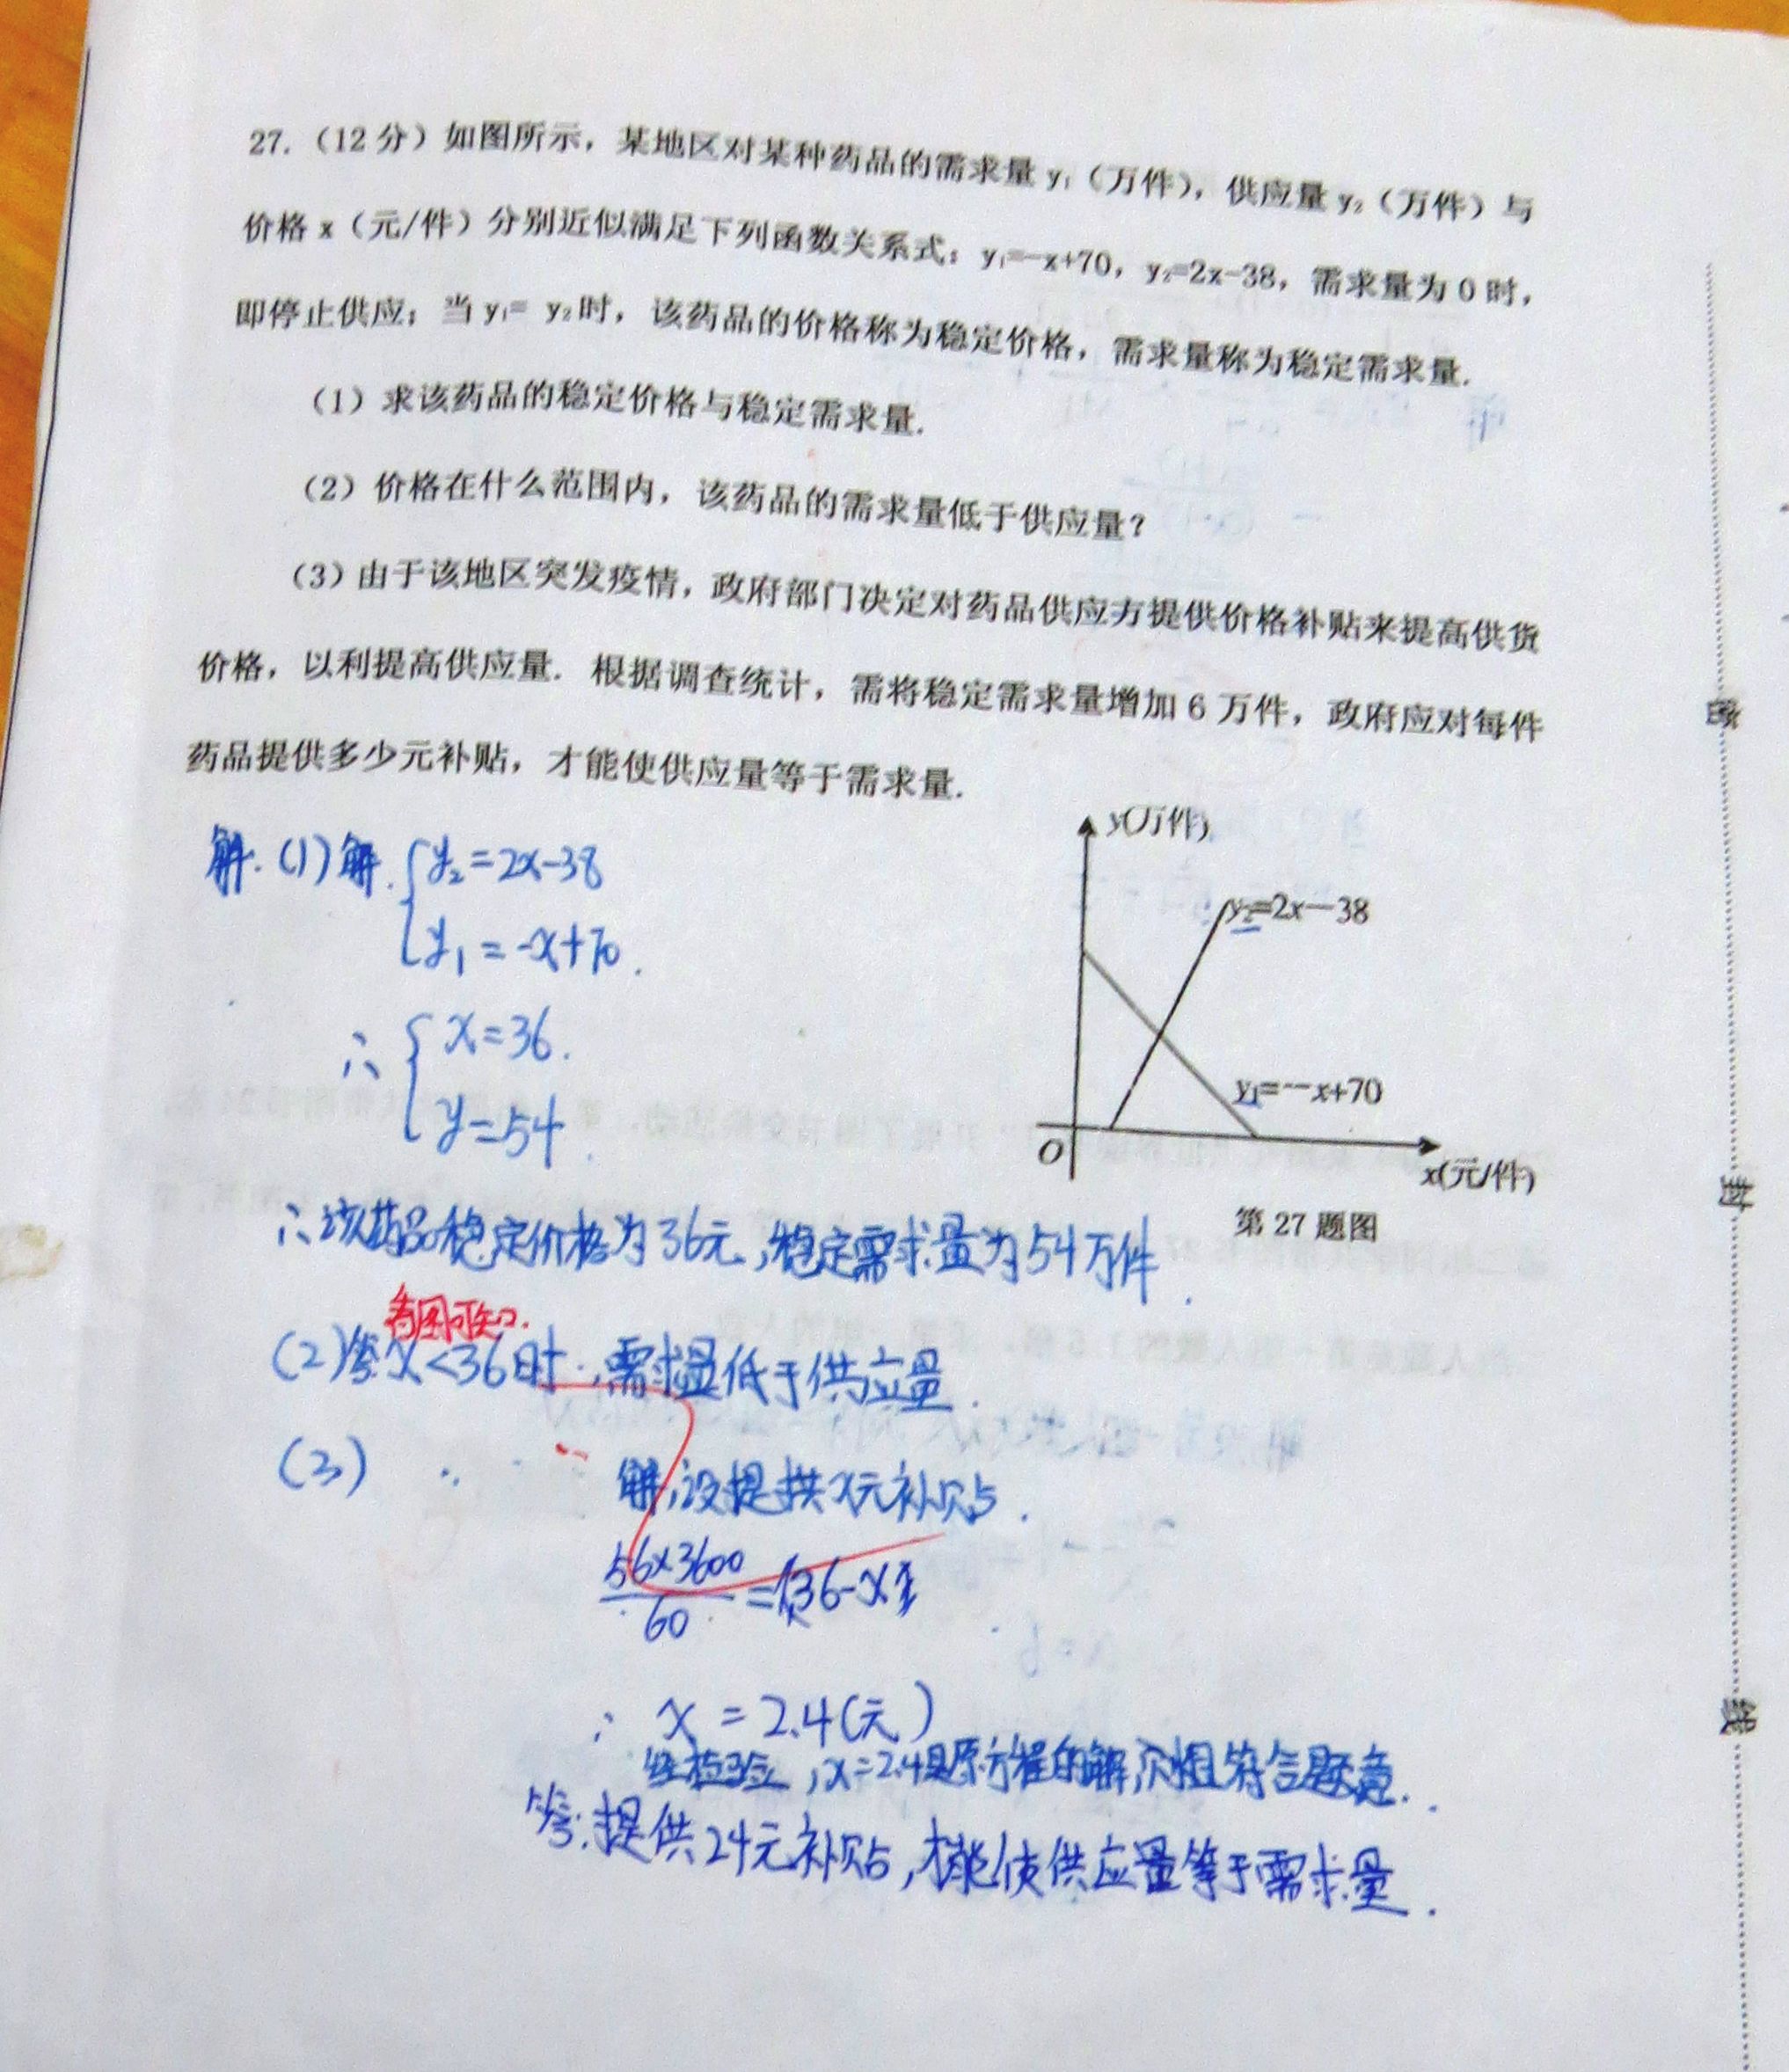 27.（12分）如图所示，某地区对某种药品的需求量y₁（万件），供应量y₂（万件）与
价格x（元/件）分别近似满足下列函数关系式：y₁=-x+70，y₂=2x-38，需求量为0时，
即停止供应；当y₁= y₂时，该药品的价格称为稳定价格，需求量称为稳定需求量.
（1）求该药品的稳定价格与稳定需求量.
（2）价格在什么范围内，该药品的需求量低于供应量？
（3）由于该地区突发疫情，政府部门决定对药品供应方提供价格补贴来提高供货
价格，以利提高供应量. 根据调查统计，需将稳定需求量增加6万件，政府应对每件
药品提供多少元补贴，才能使供应量等于需求量.
y(万件)
y₂=2x-38
y₁=-x+70
O
x(元/件)
第27题图
解.(1)解.{y₂=2x-38
y₁=-x+70.
∴{x=36.
y=54.
∴该药品稳定价格为36元,稳定需求量为34万件.
看图可知.
(2)答x<36时,需求量低于供应量.
(3)
解,设提供x元补贴.
56×3600
60
=136-x
∴ x=2.4(元)
经检验,x=2.4是原方程的解,且符合题意.
答:提供24元补贴,才能使供应量等于需求量.
密
封
线